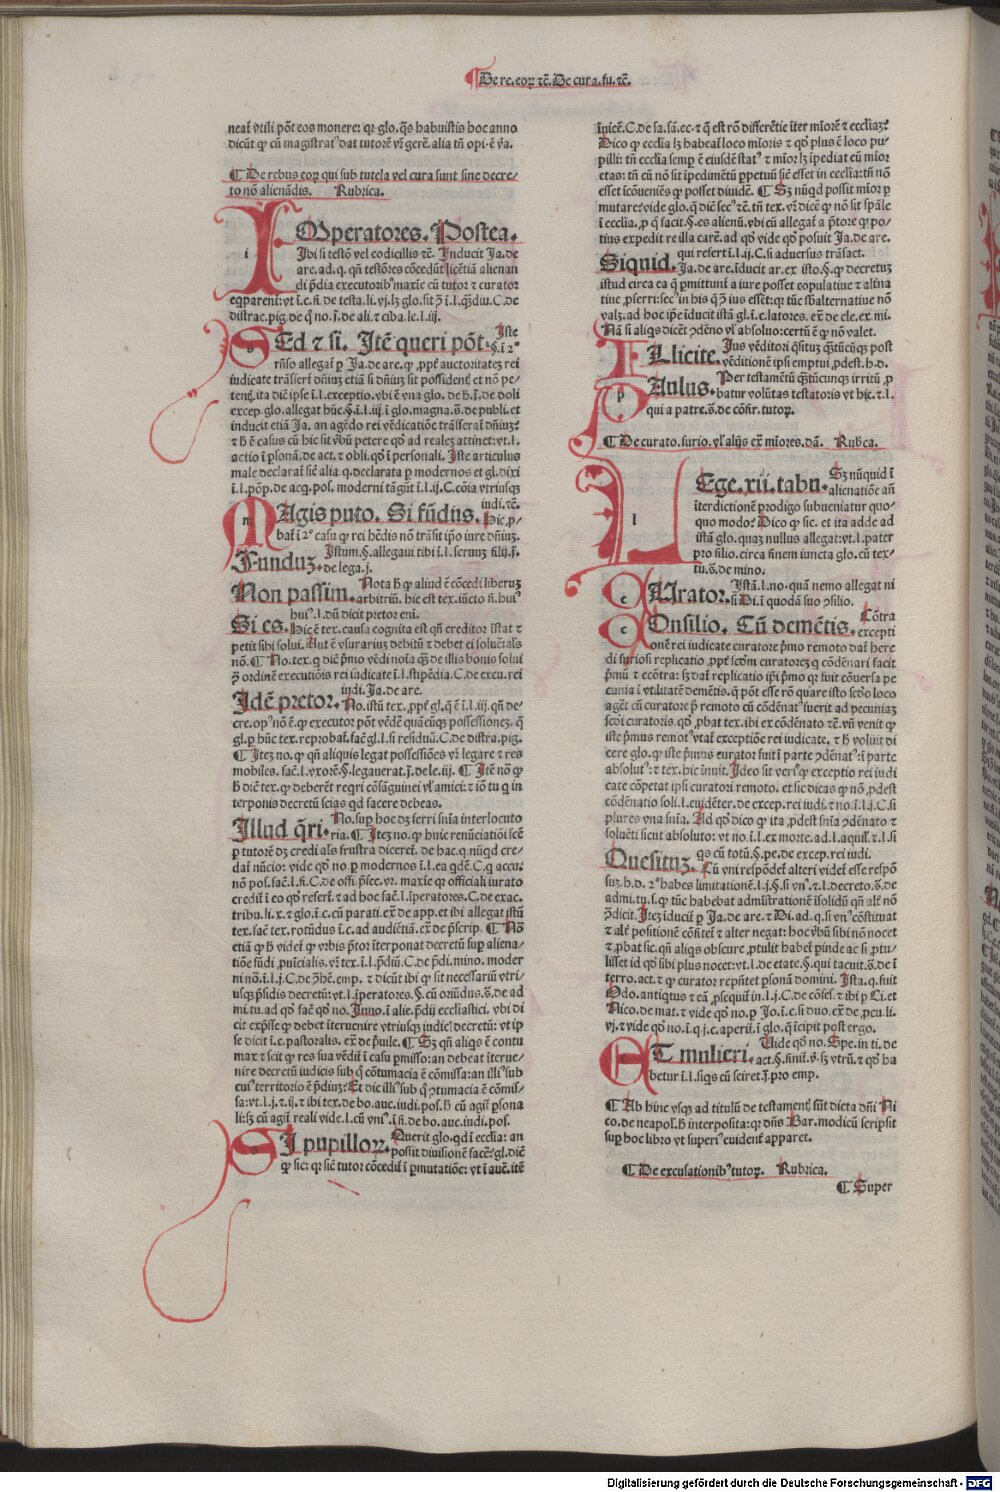 ¶ De re. eoꝝ ⁊c̄. De cura. fu. ⁊c̄.
neat̄ vtili pōt eos monere: qꝛ glo. q̄s habuistis hoc anno
dicūt ꝙ cū magistratꝰ dat tutorē vꝛ̄ gerē. alia tn̄ opi. ē ṽa.
¶ De rebus eoꝝ qui sub tutela vel cura sunt sine decre⸗
to nō alienādis. Rubrica.
i
IMperatores. Postea.
Ibi si testō vel codicillis ⁊c̄. Inducit Ja. de
are. ad. q. qn̄ testōres cōcedūt licētiā alienan
di p̄dia executoribꝰ maxie cū tutor ⁊ curator
eq̄parent̄: vt ī c. fi. de testa. li. vj. lꝫ glo. sit ꝯ̄ ī. l. q̄diu. C. de
distrac. pig. de q̄ no. j̄. de ali. ⁊ ciba. le. l. iij.
SEd ⁊ si. Itē queri pōt.
Iste
§. ī 2°
rn̄so allegat̄ ꝑ Ja. de are. ꝙ. ꝓpt̄ auctoritateꝫ rei
iudicate trāsfert̄ dn̄iuꝫ etiā si dn̄iuꝫ sit possidentꝭ et nō pe⸗
tentꝭ. ita dic̄ ipse ī. l. exceptio. vbi ē vna glo. de h. j̄. de doli
excep. glo. allegat hūc. §. ī. l. iij. ī glo. magna. s̄. de publi. et
inducit etiā Ja. an agēdo rei vēdicatiōe trāsferat̄ dn̄iuꝫ?
⁊ h̄ ē casus cū hic sit ṽbū petere qd̄ ad realeꝫ attinet: vt. l.
actio ī ꝑsonā. de act. ⁊ obli. qd̄ ī personali. Iste articulus
male declarat̄ sic̄ alia. q. declarata ꝑ modernos et gl. dixi
ī. l. pōp. de acq. pos. moderni tāgūt ī. l. ij. C. cōia vtriusqꝫ
iudi. ⁊c̄.
MAgis puto. Si fūdus.
Hic. ꝓ⸗
bat̄ ī 2° casu ꝙ rei hēdis nō trāsit ip̄o iure dn̄iuꝫ.
Funduꝫ.
Istum. §. allegaui tibi ī. l. seruuꝫ filij. §.
de lega. j.
Non passim.
Nota h̄ ꝙ aliud ē cōcedi liberuꝫ
arbitriū. hic est tex. iūcto fi. huiꝰ
huiꝰ. l. dū dicit pretor eni.
Si es.
Hic ē tex. causa cognita est qn̄ creditor īstat ⁊
petit sibi solui. Aut ē vsurariuꝫ debitū ⁊ debet ei soluēt̄ als
nō. ¶ No. tex. q̄ dic̄ pͥmo vēdi nōia q̄ꝫ de illis bonis solui
ꝯ̄ ordinē executiōis rei iudicate ī. l. stipēdia. C. de excu. rei
iudi. Ja. de are.
Idē pretor.
No. istū tex. ꝓpt̄ gl. q̄ ē ī. l. iij. qn̄ de⸗
cre. opꝰ nō ē. ꝙ executor pōt vēdē quācūqꝫ possessioneꝫ. q̄
gl. ꝑ hūc tex. reprobat̄. fac̄ gl. l. si residuū. C. de distra. pig.
¶ Iteꝫ no. ꝙ qn̄ aliquis legat possessiōes vr̄ legare ⁊ res
mobiles. fac̄. l. vxorē. §. legauerat. j̄. de le. iij. ¶ Itē nō ꝙ
h̄ dic̄ tex. ꝙ deberēt reqri cōsāguinei vl̓ amici: ⁊ iō tu q̄ in
terponis decretū scias qd sacere debeas.
Illud q̄ri.
No. suꝑ hoc dꝫ ferri snīa interlocuto
ria. ¶ Iteꝫ no. ꝙ huic renūciatiōi fcē
ꝑ tutorē dꝫ credi als frustra diceret̄. de hac. q. nūqd cre⸗
dat̄ nūcio: vide qd̄ no. ꝑ modernos ī. l. ea qdē. C. q̄ accu.
nō pos. fac̄. l. fi. C. de offi. p̄fec. vr. maxie qꝛ officiali iurato
credit̄ ī eo qd̄ refert̄. ⁊ ad hoc fac̄. l. īperatores. C. de exac.
tribu. li. x. ⁊ glo. ī. c. cū parati. ex̄ de app. et ibi allegat istū
tex. fac̄ tex. rotūdus ī. c. ad audiētiā. ex̄ de p̄scrip. ¶ Nō
etiā ꝙ h̄ videt̄ ꝙ vrbis p̄tor īterponat decretū suꝑ aliena⸗
tiōe fūdi ꝓuīcialis. vr̄ tex. ī. l. p̄diū. C. de p̄di. mino. moder
ni nō. ī. l. j. C. de ꝯhē. emp. ⁊ dicūt ibi ꝙ sit necessariū vtri⸗
usqꝫ p̄sidis decretū: vt. l. īperatores. §. cū oriūdus. s̄. de ad
mi. tu. ad qd̄ fac̄ qd̄ no. Inno. ī alie. p̄dij eccliastici. vbi di
cit exp̄sse ꝙ debet īteruenire vtriusqꝫ iudicl̓ decretū: vt ip̄
se dicit ī. c. pastoralis. ex̄ de p̄uile. ¶ Sꝫ qn̄ aliqs ē contu
max ⁊ scit ꝙ res sua vēdit̄ ī casu ꝑmisso: an debeat īterue⸗
nire decretū iudicis sub q̄ cōtumacia ē cōmissa: an illiꝰ sub
cuiꝰ territorio ē p̄diuꝫ? Et dic illiꝰ sub q̄ ꝯtumacia ē cōmis⸗
sa: vt. l. j. ⁊. ij. ⁊ ibi tex. de bo. auc. iudi. pos. h̄ cū agit̄ ꝑsona
li: sꝫ cū agit̄ reali vide. l. cū vniꝰ. ī fi. de bo. auc. iudi. pos.
SI pupilloꝝ.
Querit glo. qd ī ecclīa: an
possit diuisionē facē: gl. dic̄
ꝙ sic: qꝛ sic̄ tutor cōcedit̄ ī ꝑmutatiōe: vt ī auc̄. itē
īnicē. C. de sa. sā. ec. ⁊ q̄ est rō differētie īter mīorē ⁊ eccliaꝫ?
Dico ꝙ ecclīa lꝫ habeat̄ loco mīoris ⁊ qd̄ plus ē loco pu⸗
pilli: tn̄ ecclīa semꝑ ē eiusdē statꝰ ⁊ mīor lꝫ īpediat̄ cū mīor
etas: tn̄ cū nō sit īpedimētū ꝑpetuū sic̄ esset in ecclīa: tn̄ nō
esset īcōueniēs ꝙ posset diuidē. ¶ Sꝫ nūqd possit mīor ꝑ
mutare: vide glo. q̄ dic̄ secꝰ ⁊c̄. tn̄ tex. vr̄ dicē ꝙ nō sit sp̄ale
ī ecclīa. ꝓ q̄ facit. §. es alienū. vbi cū allegat̄ a p̄tore ꝙ po⸗
tius expedit re illa carē. ad qd̄ vide qd̄ posuit Ja. de are.
qui refert̄ ī. l. ij. C. si aduersus trāsact.
Siquid.
Ja. de are. īducit ar. ex isto. §. ꝙ decretuꝫ
istud circa ea q̄ ꝑmittunt̄ a iure posset copulatiue ⁊ alt̓na
tiue ꝓferri: secꝰ in his q̄ ꝯ̄ ius esset: qꝛ tūc s̄balternatiue nō
valꝫ. ad hoc ip̄e īducit istā gl. ī. c. latores. ex̄ de cle. ex. mi.
Nā si aliqs dicēt ꝯdēno vl̓ absoluo: certū ē ꝙ nō valet.
ILlicite.
Jus vēditori q̄situꝫ q̄tūcūqꝫ post
vēditionē ipsi emptui ꝓdest. h. d.
p
PAulus.
Per testamētū q̄tūcunqꝫ irritū ꝓ
batur volūtas testatoris vt hic. ⁊. l.
qui a patre. s̄. de cōfir. tutoꝝ.
¶ De curato. furio. vl̓ alijs ex̄ mīores. dā. Rubca.
l
LEge. xii. tabu.
Sꝫ nūquid ī
alienatiōe añ
īterdictionē ꝓdigo subueniatur quo⸗
quo modo? Dico ꝙ sic. et ita adde ad
istā glo. quaꝫ nullus allegat: vt. l. pater
pro filio. circa finem iuncta glo. cū tex⸗
tu. s̄. de mino.
c
CUrator.
Istā. l. no. quā nemo allegat ni
si Di. ī quodā suo ꝯsilio.
c
COnsilio. Cū demētis.
Cōtra
excepti
onē rei iudicate curatore pͥmo remoto dat̄ here
di furiosi replicatio. ꝓpt̄ scd̄m curatoreꝫ q̄ cōdēnari facit
pͥmū ⁊ ecōtra: sꝫ dat̄ replicatio ip̄i pͥmo qꝛ fuit cōuersa pe
cunia ī vtilitatē demētis. q̄ pōt esse rō quare isto scd̄o loco
agēt̄ cū curatore p̄ remoto cū cōdēnatꝰ fuerit ad pecuniaꝫ
scd̄i curatoris. qd̄ ꝓbat tex. ibi ex cōdēnato ⁊c̄. vn̄ venit ꝙ
iste pͥmus remotꝰ vtat̄ exceptiōe rei iudicate. ⁊ h̄ voluit di
cere glo. ꝙ iste pͥmus curator fuit ī parte ꝯdēnatꝰ: ī parte
absolutꝰ: ⁊ tex. hic īnuit. Ideo sit verū ꝙ exceptio rei iudi
cate cōpetat ip̄si curatori remoto. et sic dicas ꝙ nō ꝓdest
cōdēnatio soli. l. euidēter. de excep. rei iudi. ⁊ no. ī. l. j. C. si
plures vna snīa. Ad qd̄ dico ꝙ ita ꝓdest snīa ꝯdēnato ⁊
soluēti sicut absoluto: vt no. ī. l. ex morte. ad. l. aquil̓. ⁊. l. si
qs cū totū. §. pe. de excep. rei iudi.
Quesituꝫ.
Cū vni respōdet̄ alteri videt̄ esse respō
suꝫ. h. d. 2° habes limitationē. l. j. §. si vnꝰ. ⁊. l. decreto. s̄. de
admi. tu. s. ꝙ tūc habebat admistrationē īsolidū qn̄ alt̄ nō
ꝯ̄dicit. Iteꝫ īducit̄ ꝑ Ja. de are. ⁊ Di. ad. q. si vnꝰ cōstituat̄
⁊ alt̄ positionē cōfitet̄ ⁊ alter negat: hoc ṽbū sibi nō nocet
⁊ ꝓbat sic. qn̄ aliqs obscure ꝓtulit habet̄ ꝑinde ac si ꝓtu⸗
lisset id qd̄ sibi plus nocet: vt. l. de etate. §. qui tacuit. s̄. de ī
terro. act. ⁊ ꝙ curator rep̄ntet ꝑsonā domini. Ista. q. fuit
Odo. antiqtus ⁊ eā ꝓsequit̄ in. l. j. C. de cōfes. ⁊ ibi ꝑ Ci. et
Nico. de mat. ⁊ vide qd̄ no. ꝑ Jo. ī. c. si duo. ex̄ de ꝓcu. li.
vj. ⁊ vide qd̄ no. ī. q. j. c. aperit̄. ī glo. q̄ īcipit post ergo.
ET mulieri.
Vide qd̄ no. Spe. in ti. de
act. §. sinił. ṽ. sꝫ vtrū. ⁊ qd̄ ha
betur ī. l. siqs cū sciret. j̄. pro emp.
¶ Ab hinc vsqꝫ ad titulū de testament̄. sūt dicta dn̄i Ni
co. de neapol̓. h̄ interposita: qꝛ dn̄s Bar. modicū scripsit
suꝑ hoc libro vt superiꝰ euident̄ apparet.
¶ De excusationibꝰ tutoꝝ. Rubrica.
¶ Super
Digitalisierung gefördert durch die Deutsche Forschungsgemeinschaft - DFG